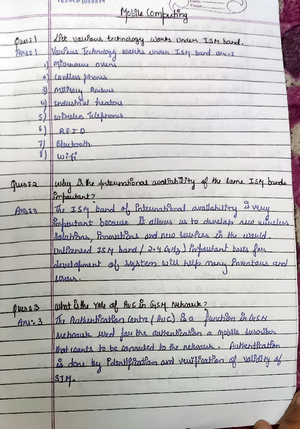 Mobile Computing
Ques:1 List various technology works under ISM band.
Ans:1 Various Technology works under ISM band are:
1) Microwave ovens
2) Cordless phones
3) Military Radars
4) Industrial heaters
5) Wireless Telephones
6) RFID
7) Bluetooth
8) Wifi
Ques:2 Why is the international availability of the same ISM bands
important?
Ans:2 The ISM band of International availability is very
important because it allows us to develop new wireless
solutions, innovations and new services in the world
unlicensed ISM band / 2.4 GHz / important bands for
development of system will help many inventors and
users.
Ques:3 What is the role of AUC in GSM Network?
Ans:3 The Authentication Centre (AUC) is a function in GSM
Network used for the authentication a mobile
that wants to be connected to the network. Authentication
is done by Identification and verification of validity of
SIM.